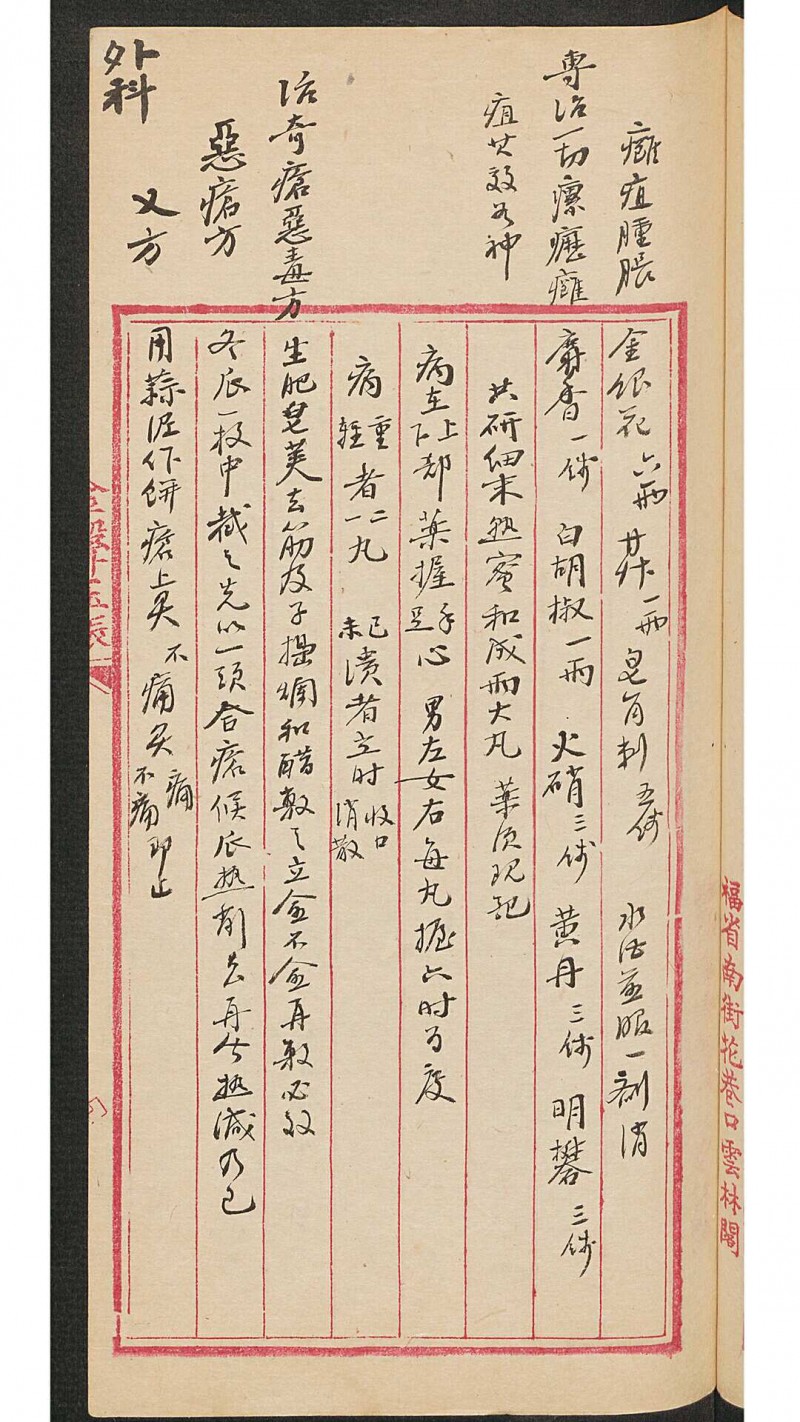 癰疽腫脹
金銀花 六兩 甘草一兩 皂角刺 五錢 水酒並服一劑消
專治一切瘰癧癰
疽其效如神
麝香一錢 白胡椒一兩 火硝三錢 黃丹三錢 明礬三錢
共研細末熟蜜和成兩大丸 藥須現配
病在上下部藥握手足心 男左女右每丸握六時為度
病重輕者二一丸 已未潰者立時收口消散
治奇瘡惡毒方
生肥皂莢去筋及子搗爛和醋敷之立愈不愈再敷必效
惡瘡方
冬瓜一枚中截之先以一頭合瘡候瓜熱削去再合熱減乃已
又方
用蒜泥作餅瘡上灸不痛灸痛痛灸不痛即止
外科
福省南街花巷口雲林閣